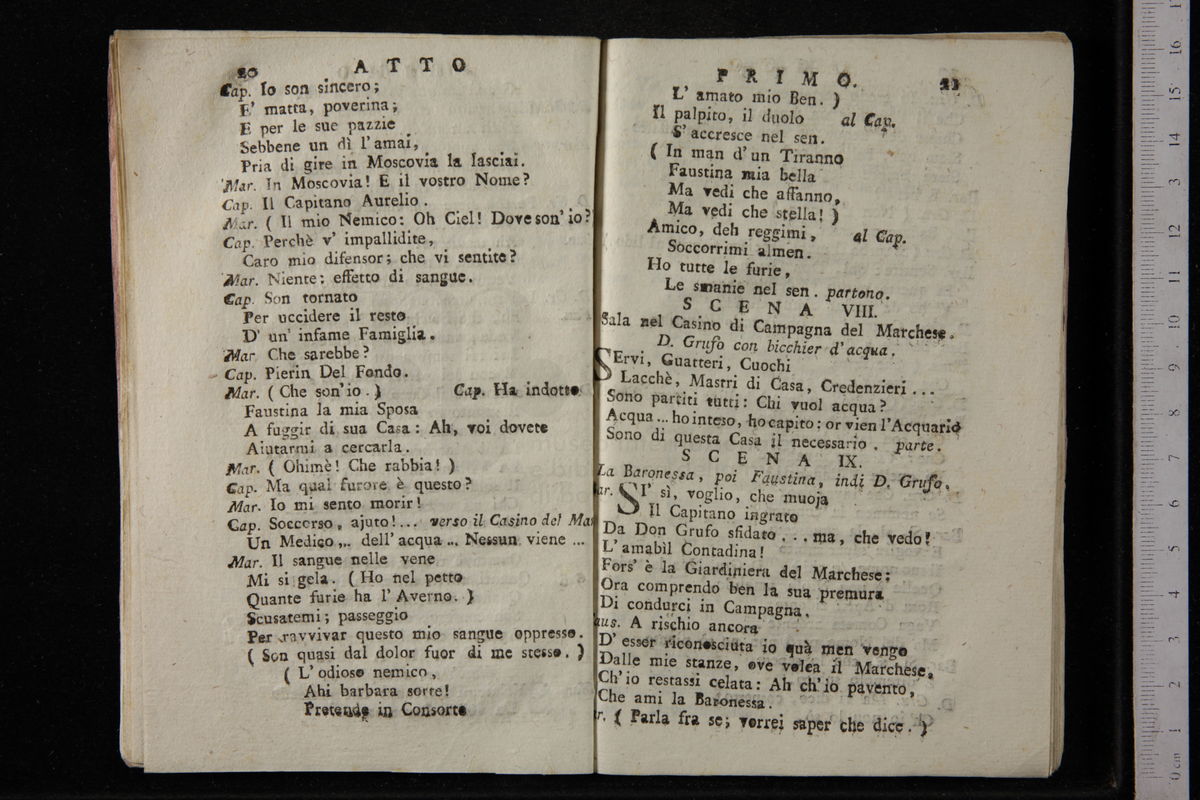 20 ATTO
Cap. Io son sincero;
E' matta, poverina;
E per le sue pazzie
Sebbene un dì l'amai,
Pria di gire in Moscovia la lasciai.
Mar. In Moscovia! E il vostro Nome?
Cap. Il Capitano Aurelio.
Mar. ( Il mio Nemico: Oh Ciel! Dove son' io?
Cap. Perchè v' impallidite,
Caro mio difensor; che vi sentite?
Mar. Niente: effetto di sangue.
Cap. Son tornato
Per uccidere il resto
D' un' infame Famiglia.
Mar. Che sarebbe?
Cap. Pierin Del Fondo.
Mar. ( Che son'io. ) Cap. Ha indotto
Faustina la mia Sposa
A fuggir di sua Casa: Ah, voi dovete
Aiutarmi a cercarla.
Mar. ( Ohimè! Che rabbia! )
Cap. Ma qual furore è questo?
Mar. Io mi sento morir!
Cap. Soccorso, ajuto!... verso il Casino del Mar
Un Medico,.. dell'acqua... Nessun viene ...
Mar. Il sangue nelle vene
Mi si gela. ( Ho nel petto
Quante furie ha l'Averno. )
Scusatemi; passeggio
Per ravvivar questo mio sangue oppresso.
( Son quasi dal dolor fuor di me stesso. )
( L'odioso nemico,
Ahi barbara sorte!
Pretende in Consorte
PRIMO. 21
L' amato mio Ben. )
Il palpito, il duolo al Cap.
S' accresce nel sen.
( In man d'un Tiranno
Faustina mia bella
Ma vedi che affanno,
Ma vedi che stella! )
Amico, deh reggimi, al Cap.
Soccorrimi almen.
Ho tutte le furie,
Le smanie nel sen. partono.
SCENA VIII.
Sala nel Casino di Campagna del Marchese.
D. Grufo con bicchier d'acqua.
SErvi, Guatteri, Cuochi
Lacchè, Mastri di Casa, Credenzieri...
Sono partiti tutti: Chi vuol acqua?
Acqua... ho inteso, ho capito: or vien l'Acquario
Sono di questa Casa il necessario. parte.
SCENA IX.
La Baronessa, poi Faustina, indi D. Grufo.
ar. SI' sì, voglio, che muoja
Il Capitano ingrato
Da Don Grufo sfidato... ma, che vedo!
L'amabil Contadina!
Fors' è la Giardiniera del Marchese;
Ora comprendo ben la sua premura
Di condurci in Campagna.
aus. A rischio ancora
D' esser riconosciuta io quà men vengo
Dalle mie stanze, ove volea il Marchese,
Ch'io restassi celata: Ah ch'io pavento,
Che ami la Baronessa.
r. ( Parla fra se; vorrei saper che dice. )